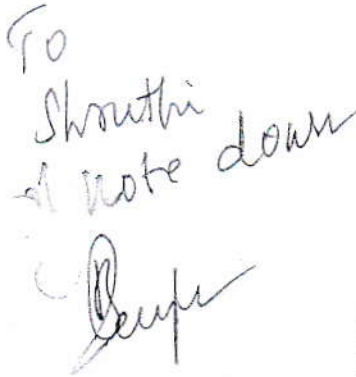 To
Shruthi
note down